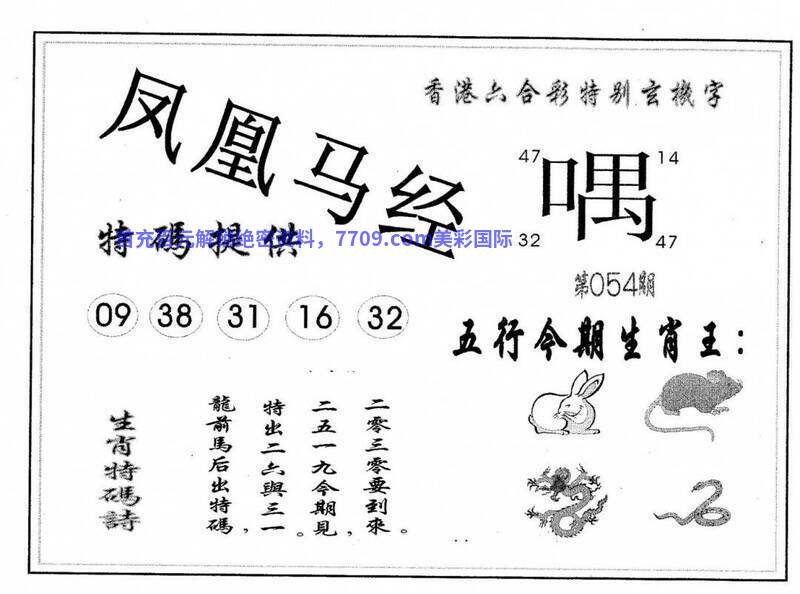 凤凰马经
香港六合彩特别玄機字
47
14
喁
32
47
特碼提供
首充百元解锁绝密资料，7709.com美彩国际
第054期
09 38 31 16 32
五行今期生肖王：
生肖特碼詩
龍前馬后出特碼，
特出二六與三一。
二五一九今期見，
二零三零要到來。